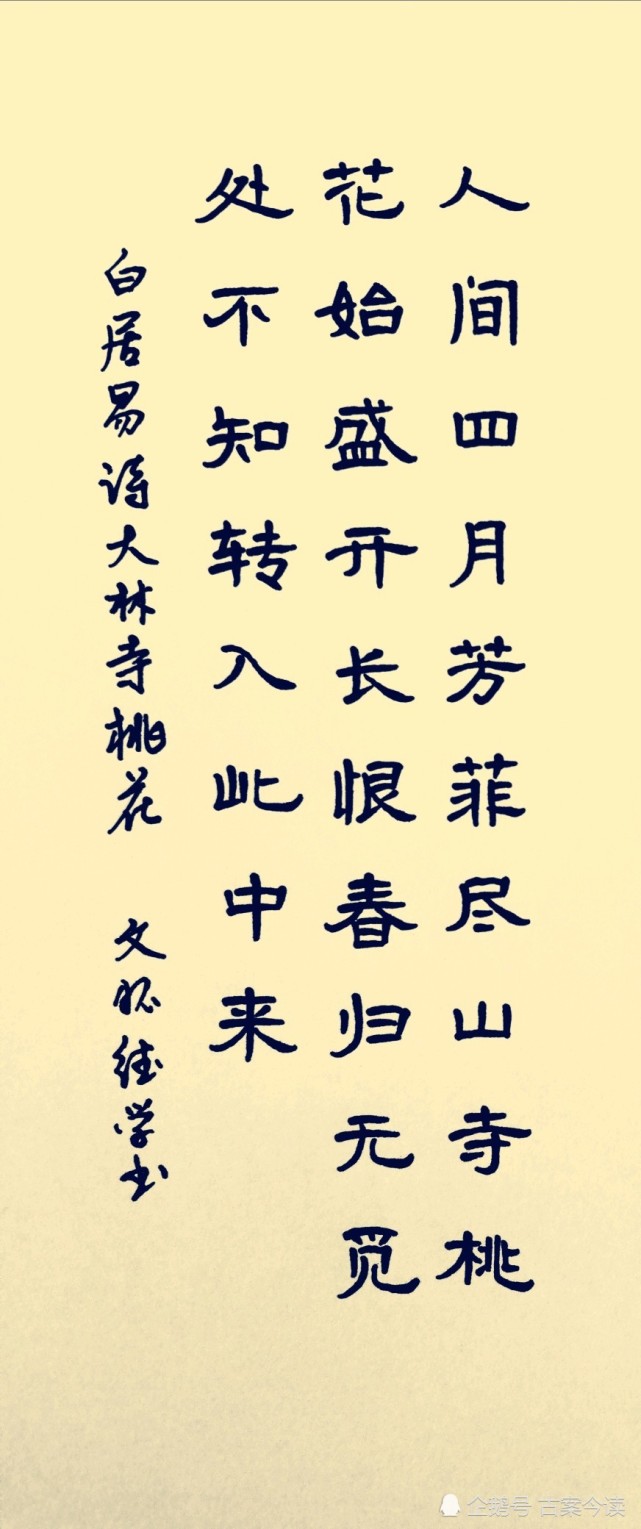 人间四月芳菲尽山寺桃
花始盛开长恨春归无觅
处不知转入此中来
白居易诗大林寺桃花 文学书
企鹅号 古案今读